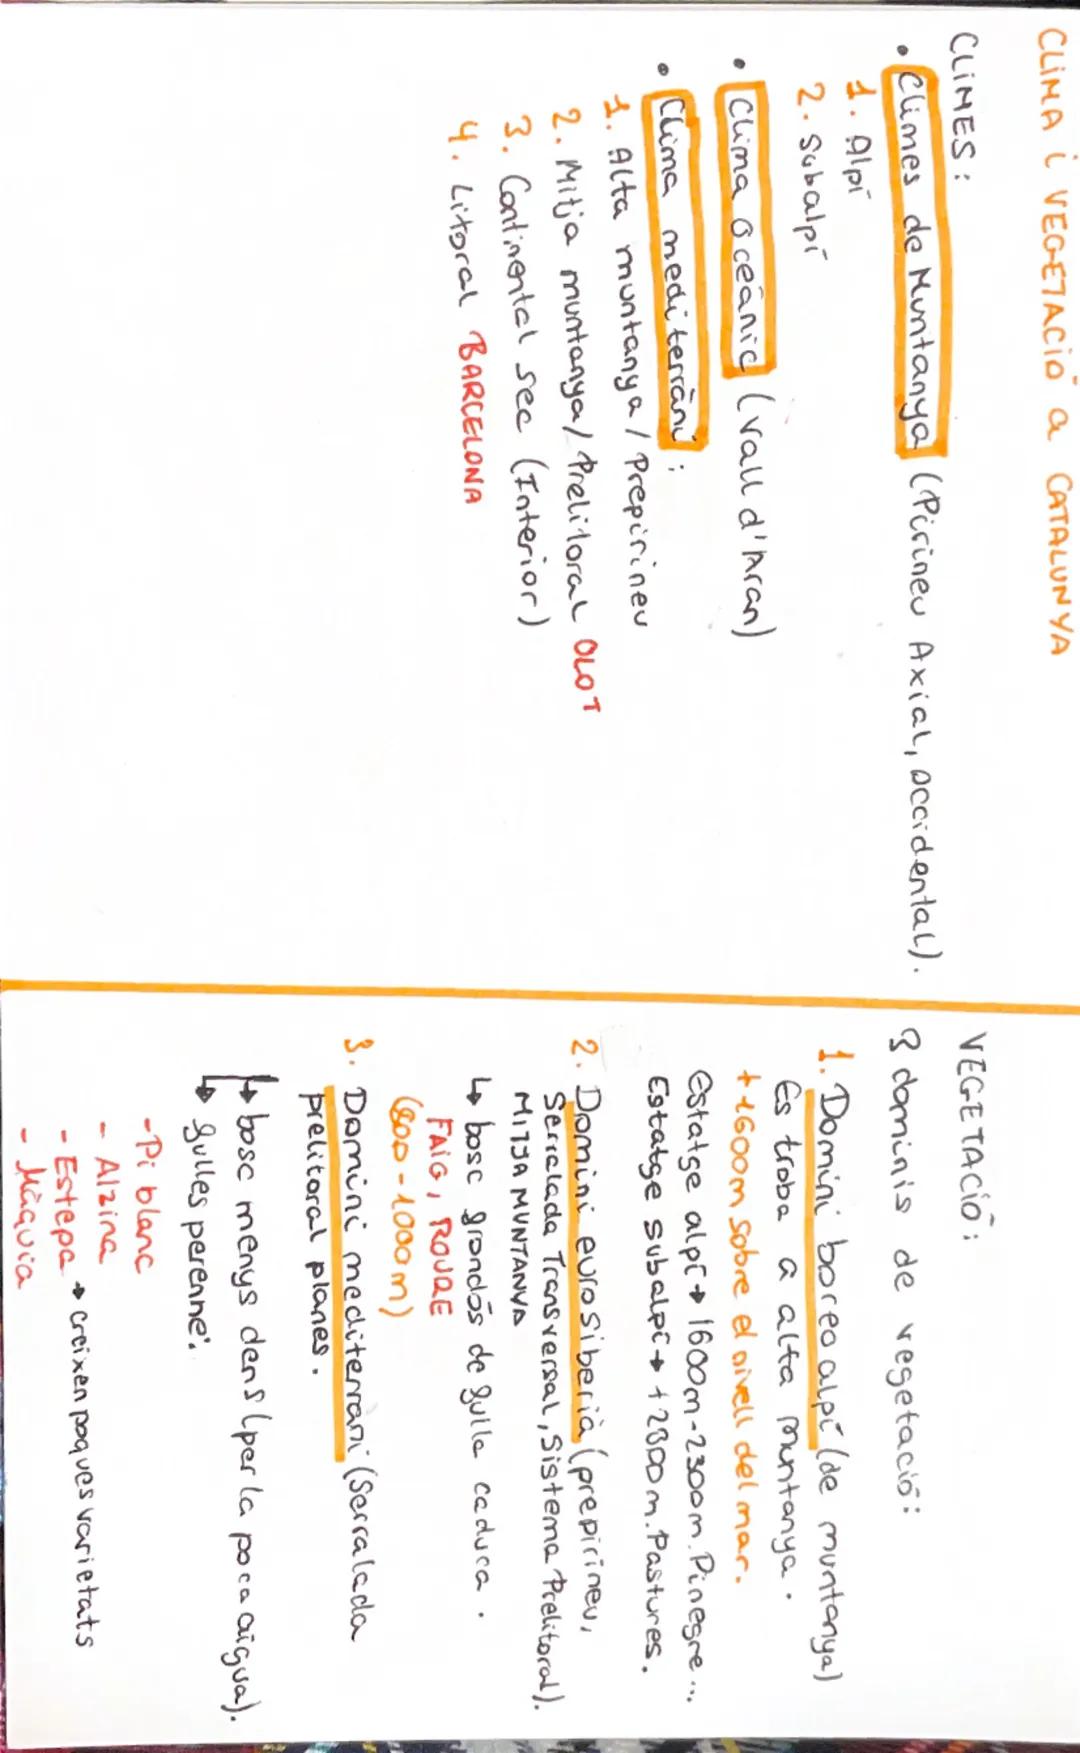 CLIMA i VEGETACIÓ a CATALUNYA
CLIMES:
• Climes de Muntanya (Pirineu Axial, occidental).
1. Alpí
2. Subalpí
• Clima oceànic (Vall d'Aran)
• Clima mediterràni:
1. Alta muntanya / Prepirineu
2. Mitja muntanya / Prelitoral OLOT
3. Continental sec (Interior)
4. Litoral BARCELONA
VEGETACIÓ:
3 dominis de vegetació:
1. Domini boreoalpí (de muntanya)
Es troba a alta muntanya.
+1600m sobre el nivell del mar.
Estatge alpí → 1600m-2300m. Pi negre...
Estatge subalpí → +2300m. Pastures.
2. Domini eurosiberià (prepirineu,
Serralada Transversal, Sistema Prelitoral).
MITJA MUNTANYA
↳ bosc frondós de fulla caduca.
FAIG, ROURE
(800-1000m)
3. Domini mediterrani (Serralada
prelitoral planes.
↳ bosc menys dens (per la poca aigua).
↳ fulles perenne:
- Pi blanc
- Alzina
- Estepa → creixen poques varietats
- Màquia